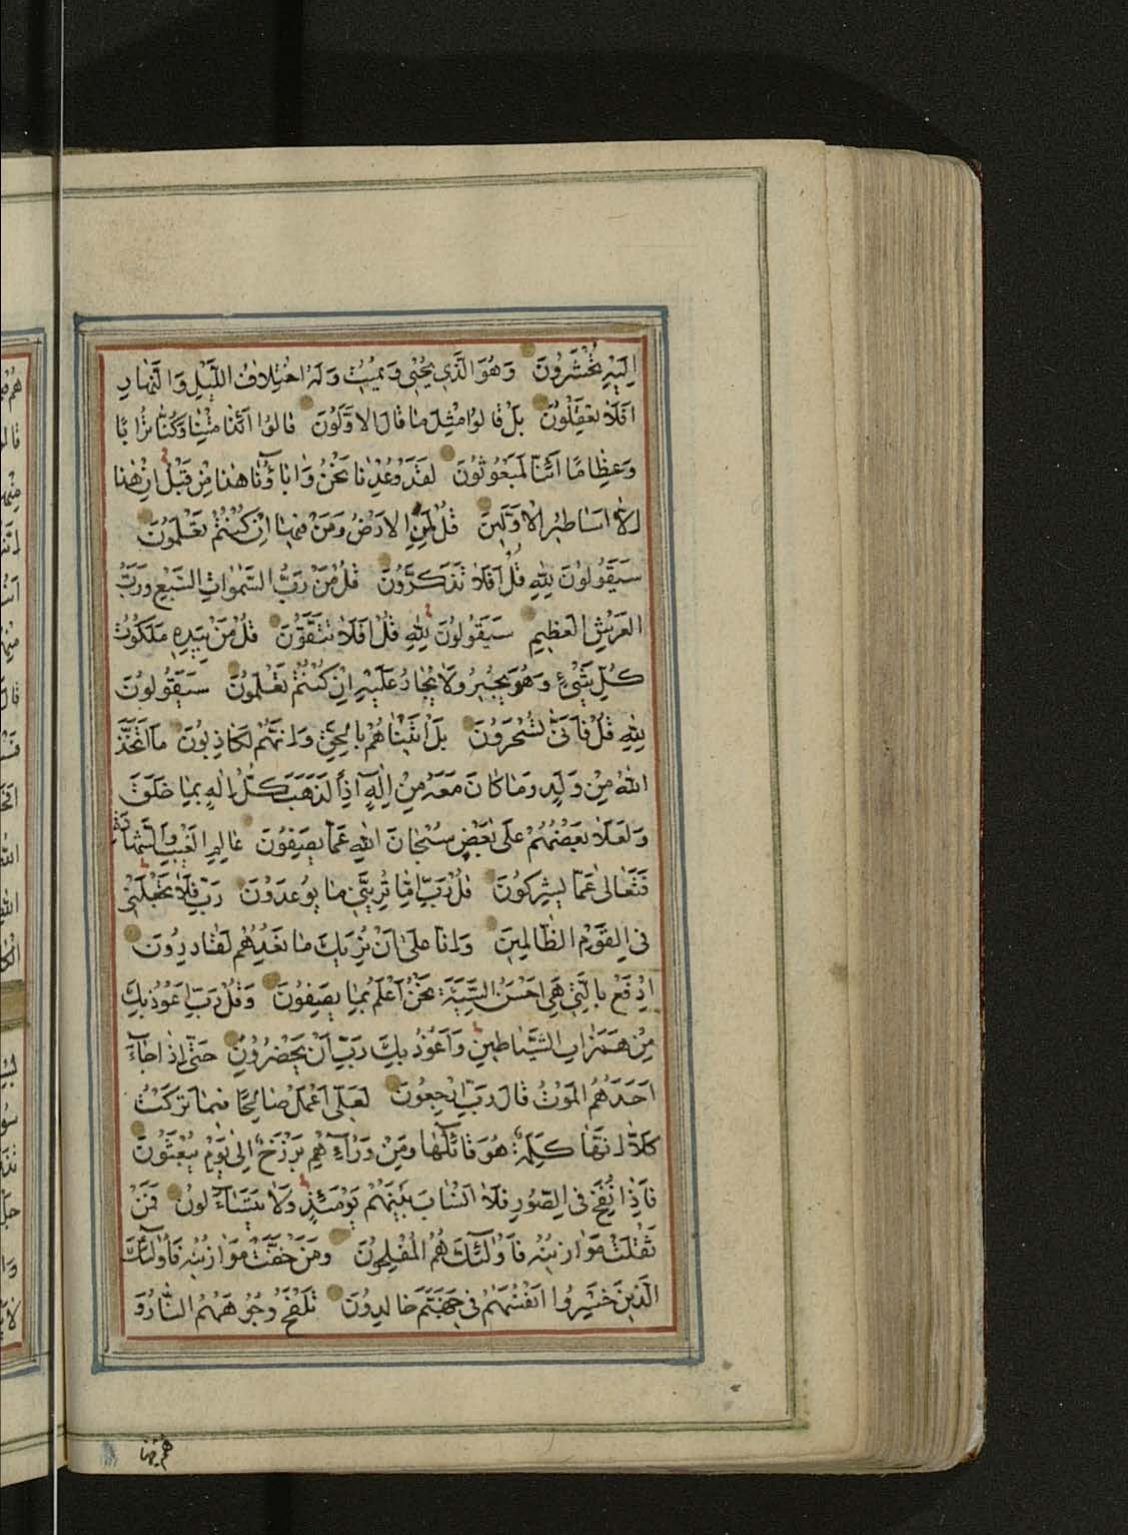 اِلَيْهِ تُحْشَرُونَ وَهُوَ الَّذِي يُحْيِي وَيُمِيتُ وَلَهُ اخْتِلافُ اللَّيْلِ وَالنَّهَارِ
اَفَلَا تَعْقِلُونَ بَلْ قَالُوا مِثْلَ مَا قَالَ الاَوَّلُونَ قَالُوا اَئِذَا مِتْنَا وَكُنَّا تُرَابًا
وَعِظَامًا اَئِنَّا لَمَبْعُوثُونَ لَقَدْ وُعِدْنَا نَحْنُ وَابَاؤُنَا هٰذَا مِنْ قَبْلُ اِنْ هٰذَا
اِلَّا اَسَاطِيرُ الاَوَّلِينَ قُلْ لِمَنِ الاَرْضُ وَمَنْ فِيهَا اِنْ كُنْتُمْ تَعْلَمُونَ
سَيَقُولُونَ لِلّٰهِ قُلْ اَفَلَا تَذَكَّرُونَ قُلْ مَنْ رَبُّ السَّمٰوَاتِ السَّبْعِ وَرَبُّ
الْعَرْشِ الْعَظِيمِ سَيَقُولُونَ لِلّٰهِ قُلْ اَفَلَا تَتَّقُونَ قُلْ مَنْ بِيَدِهِ مَلَكُوتُ
كُلِّ شَيْءٍ وَهُوَ يُجِيرُ وَلَا يُجَارُ عَلَيْهِ اِنْ كُنْتُمْ تَعْلَمُونَ سَيَقُولُونَ
لِلّٰهِ قُلْ فَاَنّٰى تُسْحَرُونَ بَلْ اَتَيْنَاهُمْ بِالْحَقِّ وَاِنَّهُمْ لَكَاذِبُونَ مَا اتَّخَذَ
اللّٰهُ مِنْ وَلَدٍ وَمَا كَانَ مَعَهُ مِنْ اِلٰهٍ اِذًا لَذَهَبَ كُلُّ اِلٰهٍ بِمَا خَلَقَ
وَلَعَلَا بَعْضُهُمْ عَلٰى بَعْضٍ سُبْحَانَ اللّٰهِ عَمَّا يَصِفُونَ عَالِمِ الْغَيْبِ وَالشَّهَادَةِ
فَتَعَالٰى عَمَّا يُشْرِكُونَ قُلْ رَبِّ اِمَّا تُرِيَنِّي مَا يُوعَدُونَ رَبِّ فَلَا تَجْعَلْنِي
فِي الْقَوْمِ الظَّالِمِينَ وَاِنَّا عَلٰى اَنْ نُرِيَكَ مَا نَعِدُهُمْ لَقَادِرُونَ
اِدْفَعْ بِالَّتِي هِيَ اَحْسَنُ السَّيِّئَةَ نَحْنُ اَعْلَمُ بِمَا يَصِفُونَ وَقُلْ رَبِّ اَعُوذُ بِكَ
مِنْ هَمَزَاتِ الشَّيَاطِينِ وَاَعُوذُ بِكَ رَبِّ اَنْ يَحْضُرُونِ حَتّٰى اِذَا جَاءَ
اَحَدَهُمُ الْمَوْتُ قَالَ رَبِّ ارْجِعُونَ لَعَلِّي اَعْمَلُ صَالِحًا فِيمَا تَرَكْتُ
كَلَّا اِنَّهَا كَلِمَةٌ هُوَ قَائِلُهَا وَمِنْ وَرَاءِهِمْ بَرْزَخٌ اِلٰى يَوْمِ يُبْعَثُونَ
فَاِذَا نُفِخَ فِي الصُّورِ فَلَا اَنْسَابَ بَيْنَهُمْ يَوْمَئِذٍ وَلَا يَتَسَاءَلُونَ فَمَنْ
ثَقُلَتْ مَوَازِينُهُ فَاُولٰئِكَ هُمُ الْمُفْلِحُونَ وَمَنْ خَفَّتْ مَوَازِينُهُ فَاُولٰئِكَ
الَّذِينَ خَسِرُوا اَنْفُسَهُمْ فِي جَهَنَّمَ خَالِدُونَ تَلْفَحُ وُجُوهَهُمُ النَّارُ وَ
هم فيها